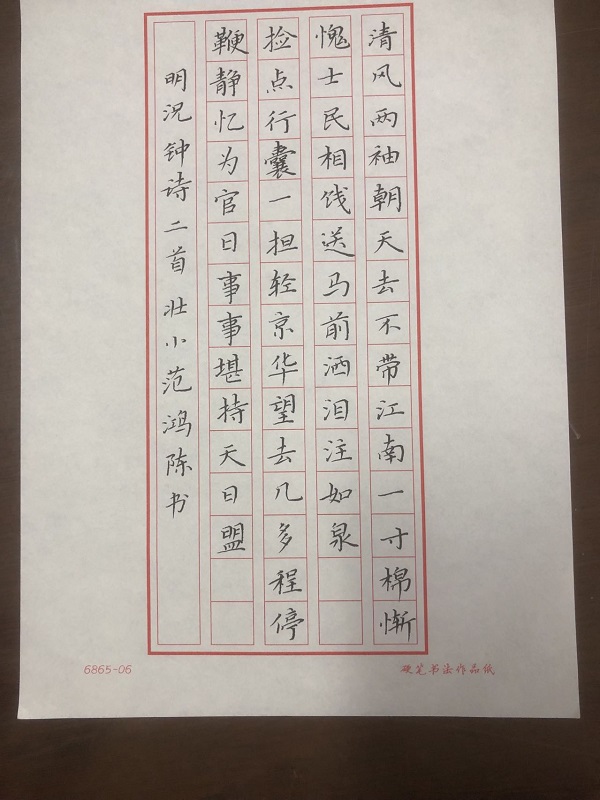 清风两袖朝天去不带江南一寸棉惭
愧士民相饯送马前洒泪注如泉
捡点行囊一担轻京华望去几多程停
鞭静忆为官日事事堪持天日盟
明况钟诗二首壮小范鸿陈书
6865-06
硬笔书法作品纸